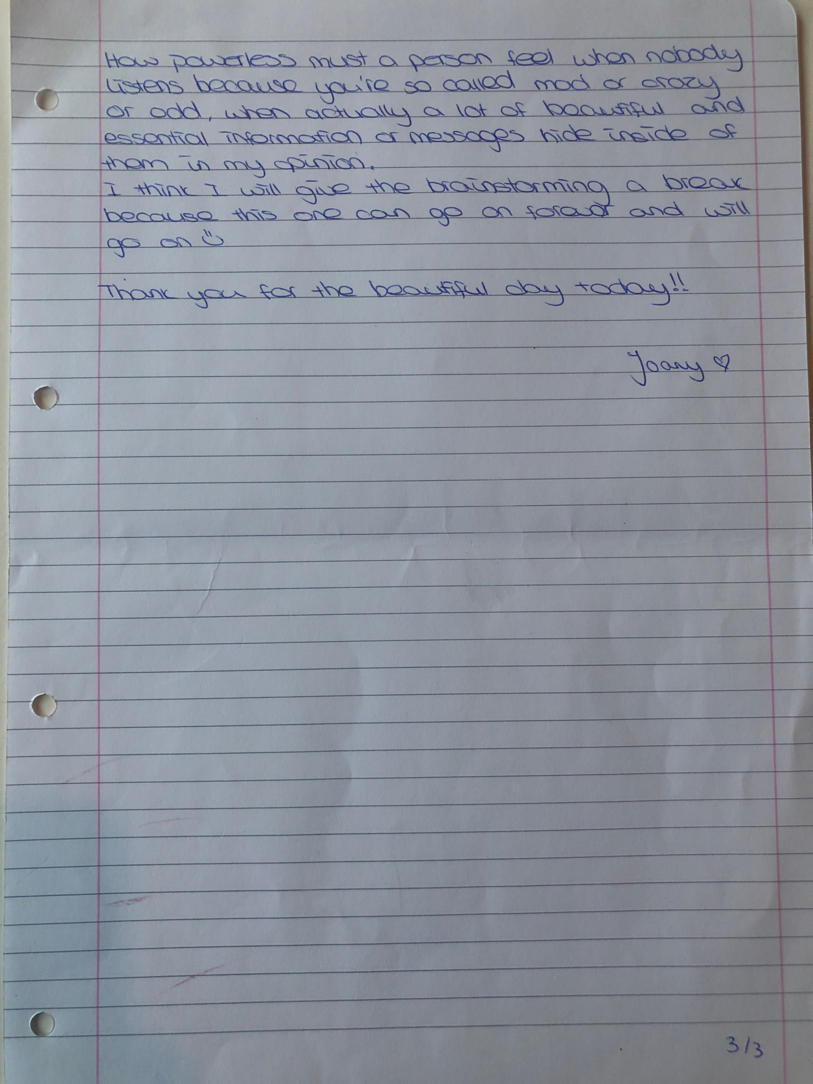 How powerless must a person feel when nobody
listens because you're so called mad or crazy
or odd, when actually a lot of beautiful and
essential information or messages hide inside of
them in my opinion.
I think I will give the brainstorming a break
because this one can go on forever and will
go on ☺
Thank you for the beautiful day today!!
Joany ♡
3/3